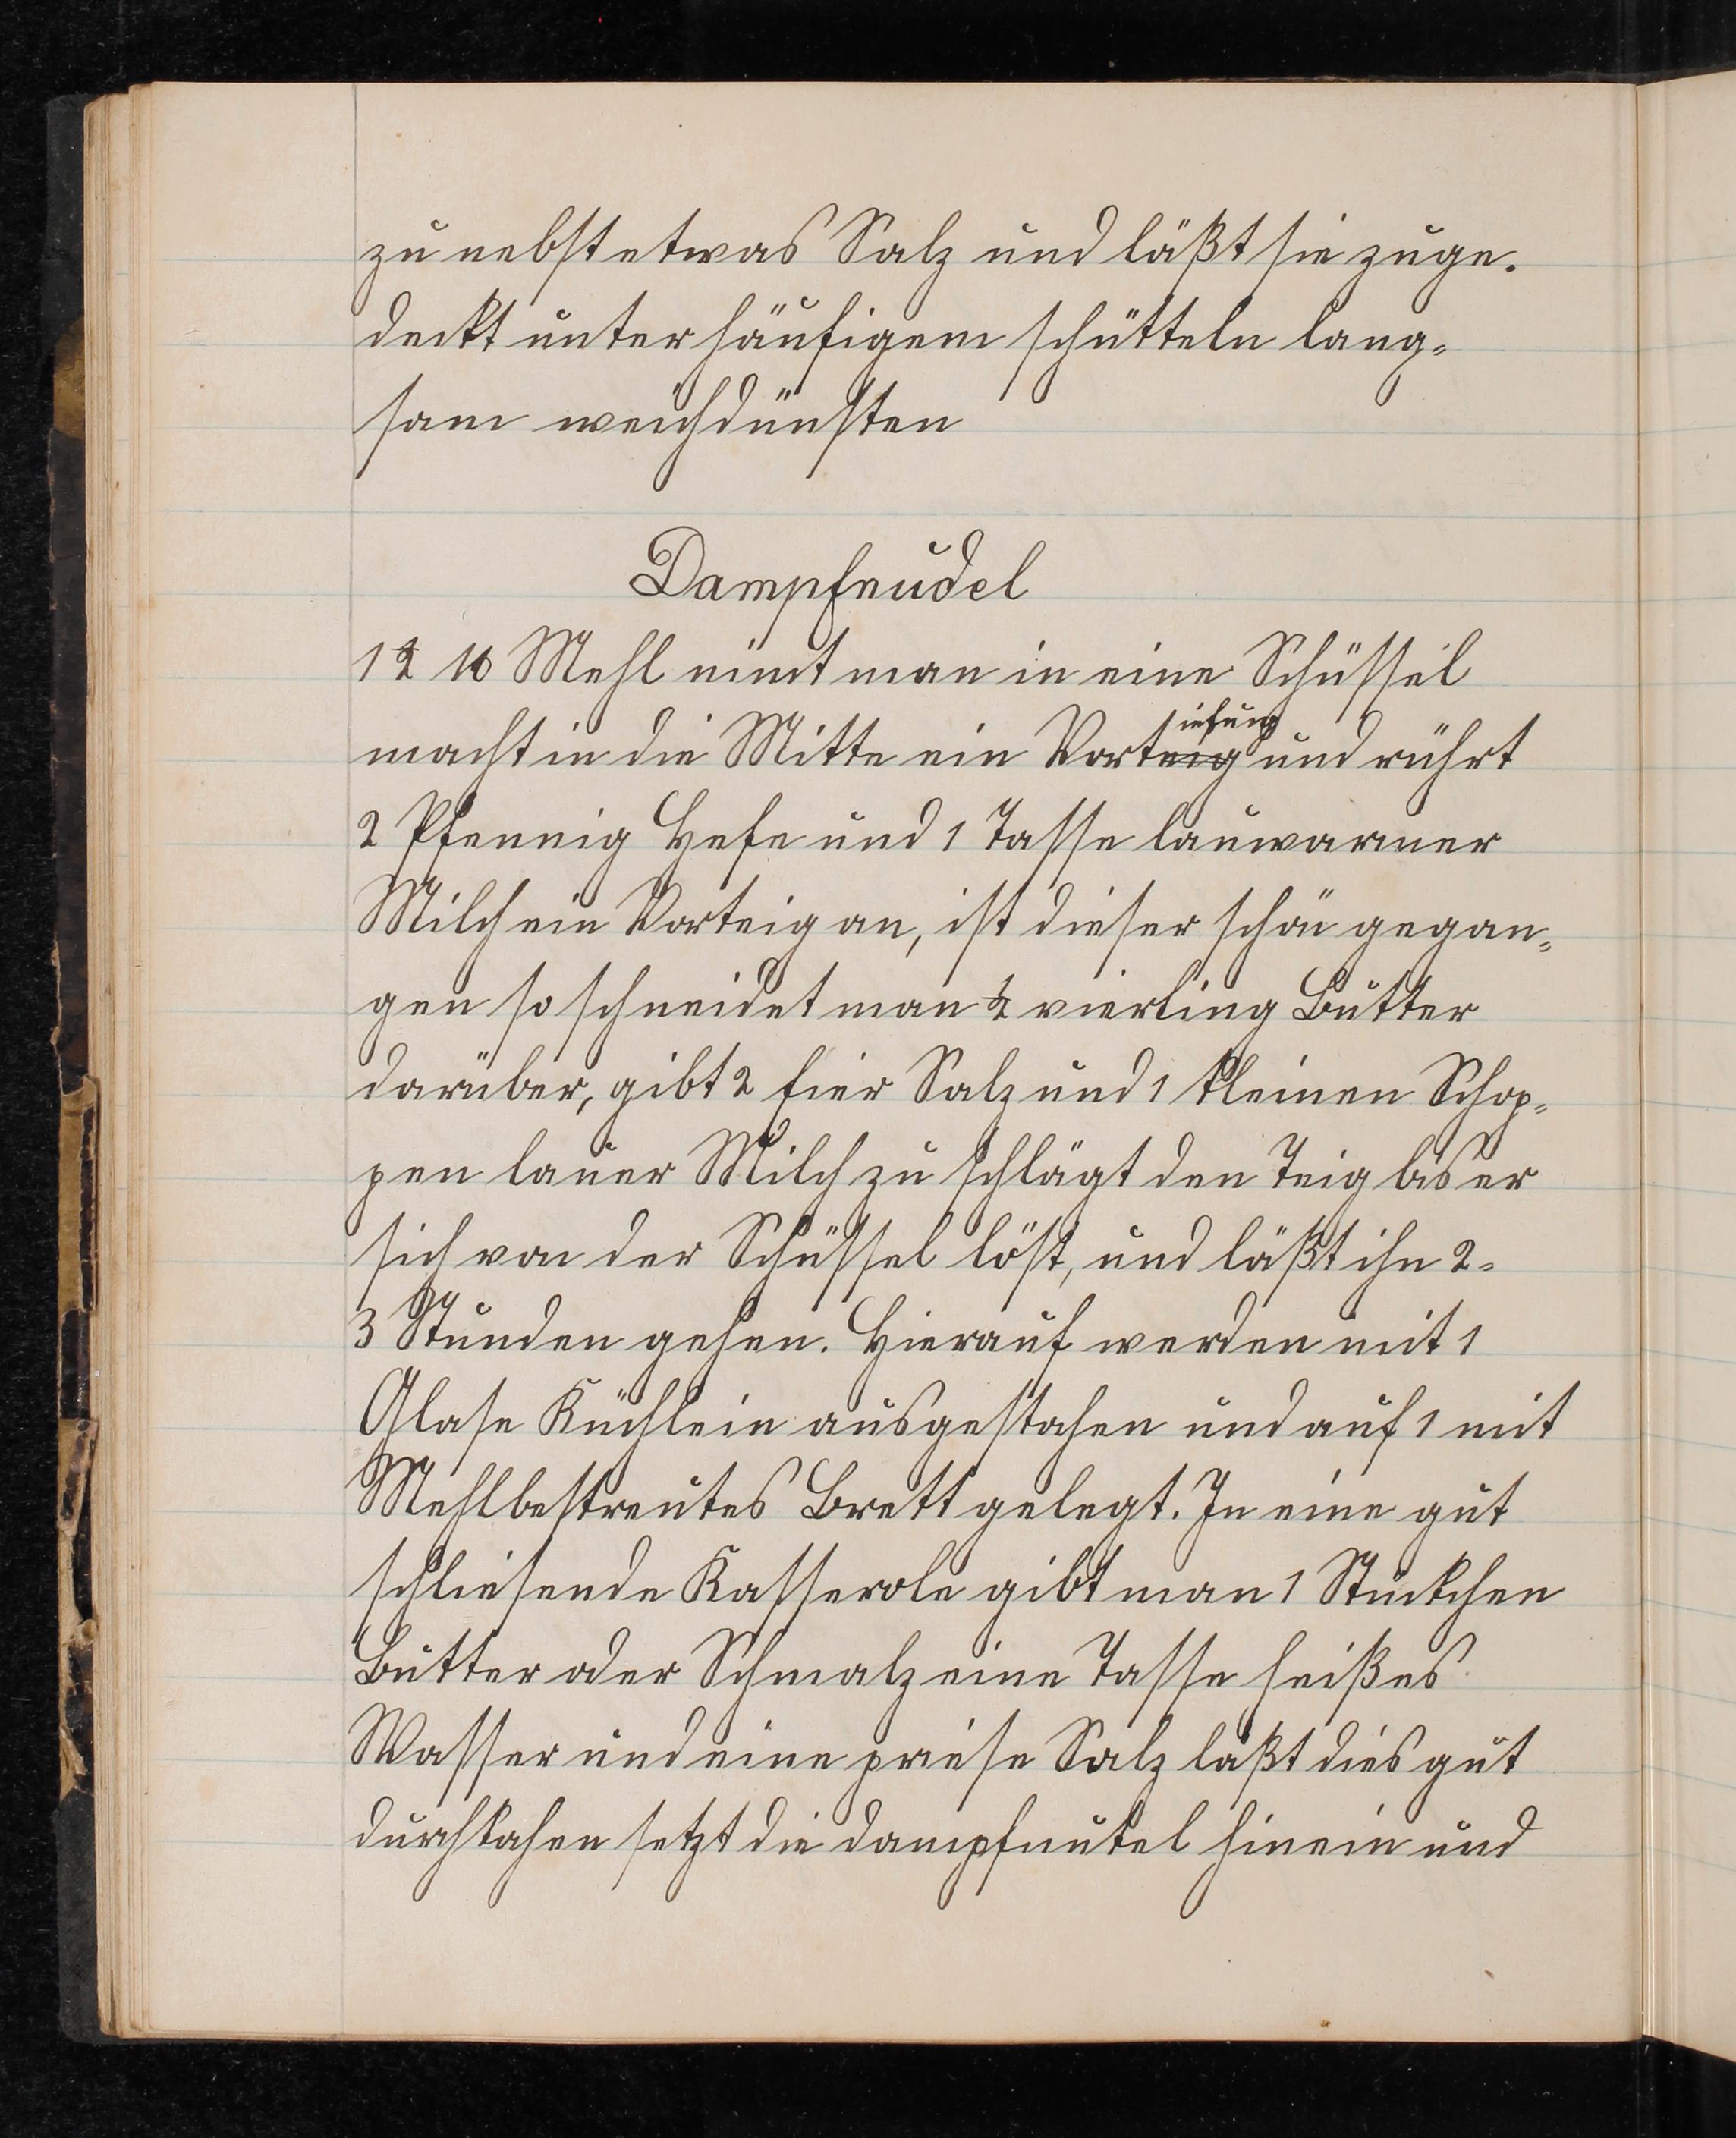 zu nebst etwas Salz und läßt sie zuge-
deckt unter häufigem schütteln lang-
sam weichdünsten
Dampfnudel
1½ ℔ Mehl nimt man in eine Schüssel
macht in die Mitte ein Vorteig und rührt
iefung
2 Pfennig Hefe und 1 Tasse lauwarmer
Milch ein Vorteig an, ist dieser schön gegan-
gen so schneidet man ½ vierling Butter
darüber, gibt 2 Eier Salz und 1 kleinen Schop-
pen lauer Milch zu schlägt den Teig bis er
sich von der Schüssel löst, und läßt ihn 2-
3 Stunden gehen. Hierauf werden mit 1
Glase Küchlein ausgestochen und auf 1 mit
Mehlbestreutes Brett gelegt. In eine gut
schliesende Kasserole gibt man 1 Stückchen
Butter oder Schmalz eine Tasse heißes
Wasser und eine priese Salz läßt dies gut
durchkochen setzt die dampfnutel hinein und